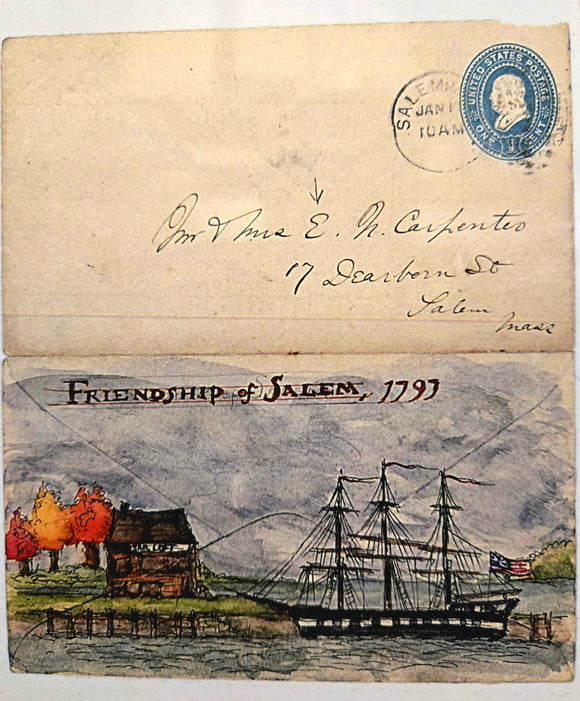 UNITED STATES POSTAGE
ONE CENT
SALEM
JAN
10 AM
Mr & Mrs E. N. Carpenter
17 Dearborn St
Salem
Mass
FRIENDSHIP of SALEM, 1797